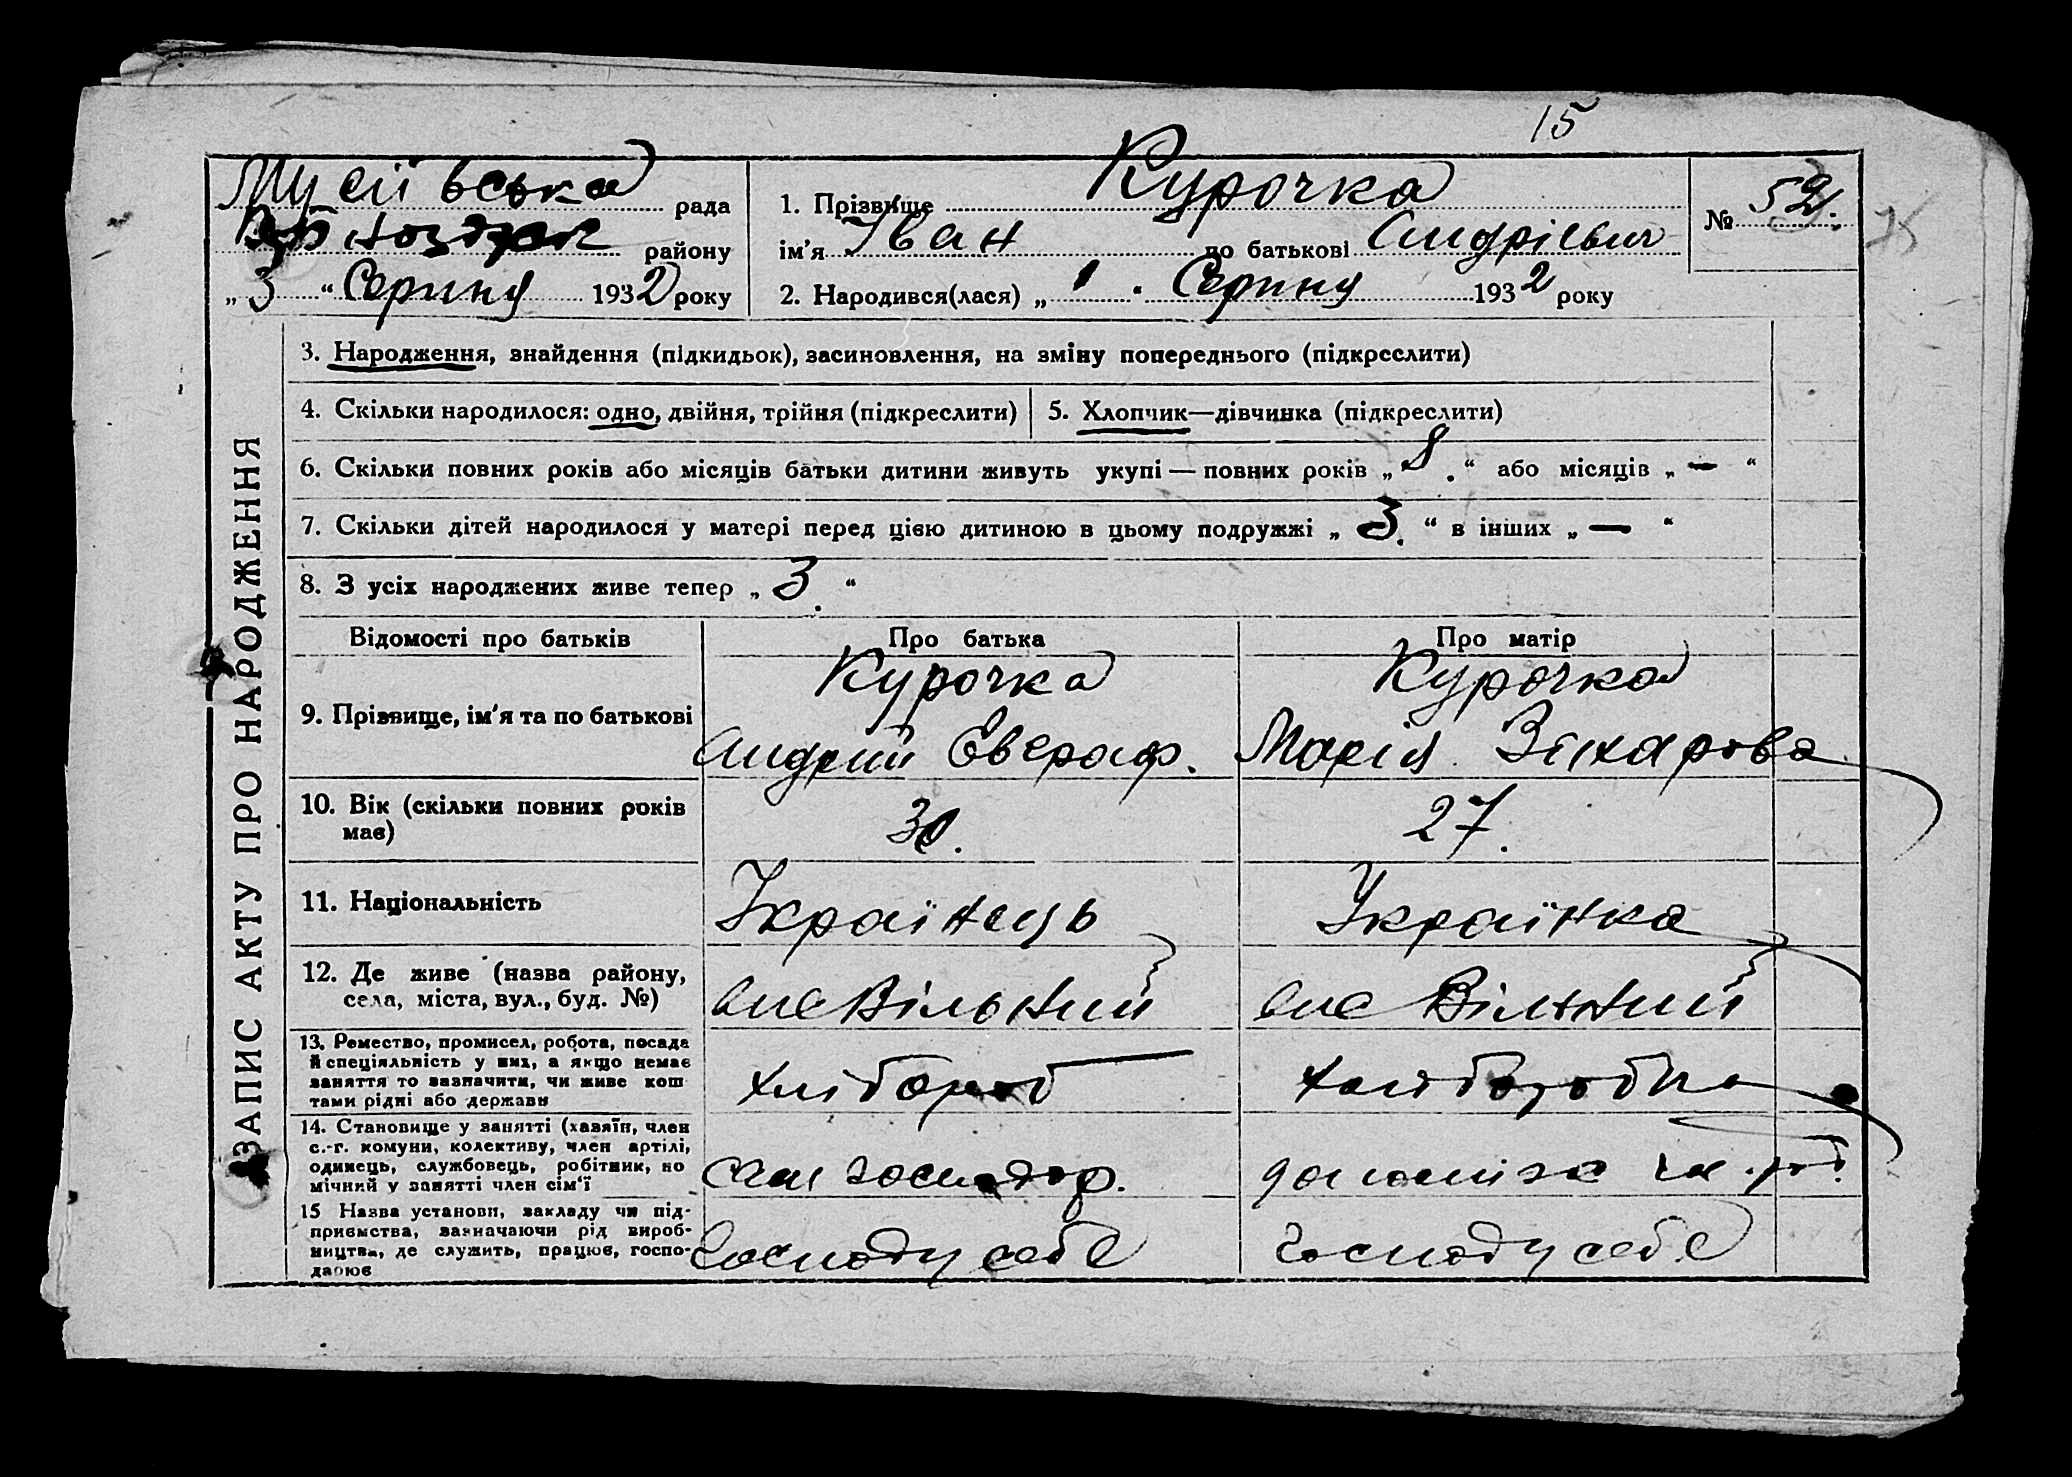 15
Мусіївська рада
району
„ 3 “ Серпня 1932 року
1. Прізвище Курочка
ім’я Іван по батькові Андрієвич
2. Народився(лася) „ 1 . Серпня 1932 року
№ 52.
ЗАПИС АКТУ ПРО НАРОДЖЕННЯ
3. Народження, знайдення (підкидьок), засиновлення, на зміну попереднього (підкреслити)
4. Скільки народилося: одно, двійня, трійня (підкреслити)
5. Хлопчик—дівчинка (підкреслити)
6. Скільки повних років або місяців батьки дитини живуть укупі — повних років „ 8. “ або місяців „ — “
7. Скільки дітей народилося у матері перед цією дитиною в цьому подружжі „ 3. “ в інших „ — “
8. З усіх народжених живе тепер „ 3. “
Відомості про батьків
Про батька
Про матір
9. Прізвище, ім’я та по батькові
Курочка
Андрий Евграф.
Курочка
Марія Захарова
10. Вік (скільки повних років
має)
30.
27.
11. Національність
Українець
Українка
12. Де живе (назва району,
села, міста, вул., буд. №)
Вільний
Вільний
13. Ремество, промисел, робота, посада
й спеціяльність у них, а якщо немає
заняття то зазначити, чи живе кош
тами рідні або держави
хлібороб
хліборобка
14. Становище у занятті (хазяїн, член
с.-г. комуни, колективу, член артілі,
одинець, службовець, робітник, по
мічний у занятті член сім’ї
сам господар.
15 Назва установи, закладу чи під-
приємства, зазначаючи рід вироб-
ництва, де служить, працює, госпо-
дарює
Господ у себе
Господ у себе